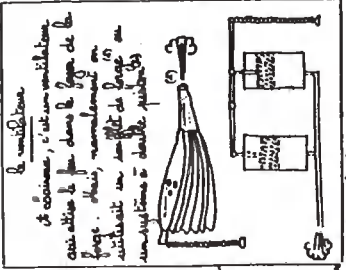 le ventilateur
c'est un ventilateur
qui attise le feu dans le foyer de la
forge. Mais, normalement on
utilisait un soufflet de forge ou
un système à double piston (2)